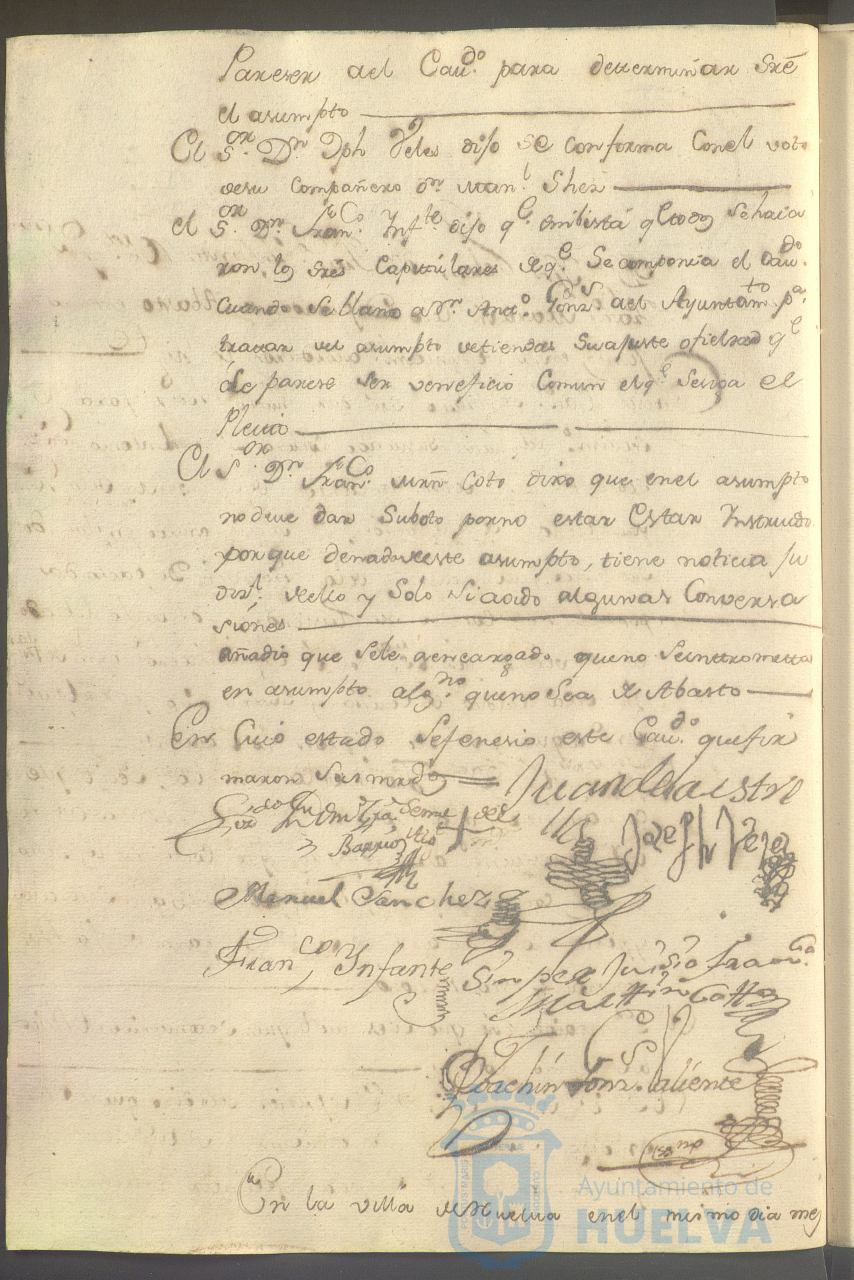 Pareser del Cavdo. para determinar sre
el asumpto
El sor. Dn. Jph Veles dijo se conforma conel voto
desu compañero dn. Manl. Shez
el sor. Dn. Franco. Infte dijo qe. enbista qe todos
ron los sres. Capitulares de qe. Se componia el Cavdo.
Cuando se llamo a Dn. Anto. Gonzs. del Ayuntamto pa.
tratar del asumpto detiendas su ajuste qe
le parese ser veneficio Comun el qe. Sesiga el
Pleito
El sor. Dn. Franco. Mrn Coto dixo que enel asumpto
no deve dar Suboto porno estar Estar Instruido
porque denadadeeste asumpto, tiene noticia Ju
disl. dello y Solo si aoido algunas Conversa
siones
añadio que sele aencargado queno seintrometta
en asumpto algno. queno Sea de Abasto
En Cuio estado Sefenesio este Cavdo. quefir
maron Sus mrds
Juan de la
Barrios
Joseph Velez
Manuel Sanchez
Franco Ynfante
Sin perjuisio Franco.
Martin Cotto
Joachin Gonz. Valiente
essno
En la villa de Huelva enel mismo dia mes
Ayuntamiento de
HUELVA